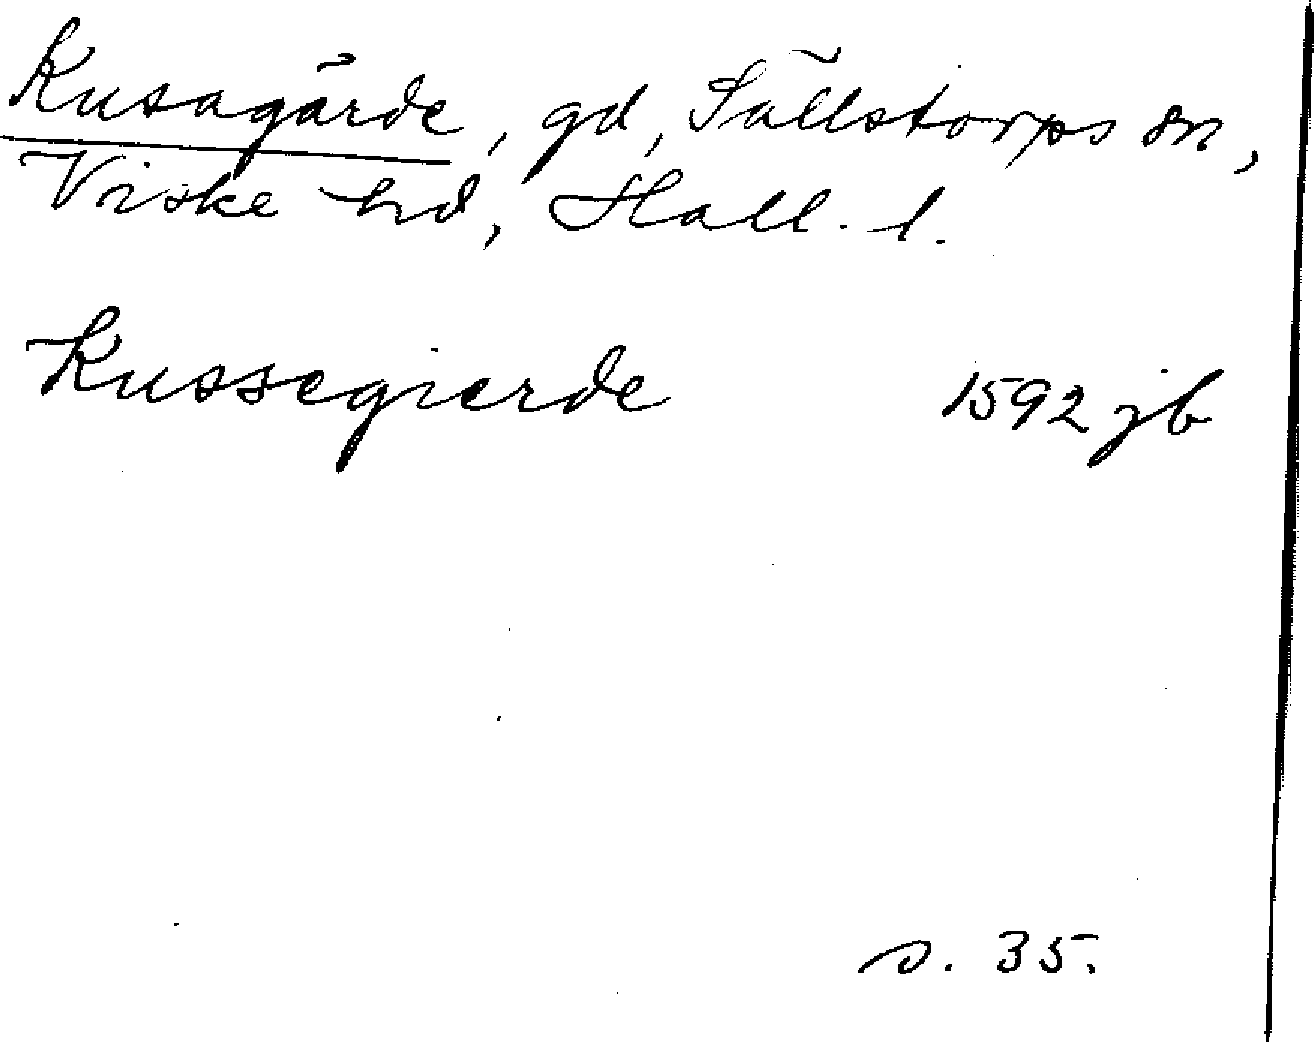 Kusagärde, gd, Sällstorps sn,
Viske hd, Hall. l.
Kussegierde 1592 jb
s. 35.